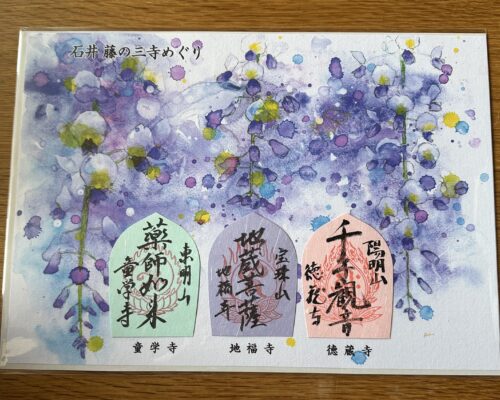 石井 藤の三寺めぐり
東明山
薬師如来
童学寺
宝珠山
地蔵菩薩
地福寺
陽明山
千手観音
徳蔵寺
童学寺
地福寺
徳蔵寺